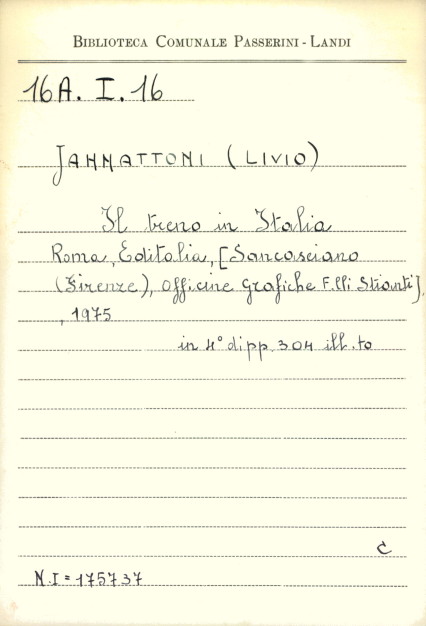 BIBLIOTECA COMUNALE PASSERINI - LANDI
16A. I. 16
JANNATTONI (LIVIO)
Il treno in Italia
Roma, Editalia, [Sancasciano
(Firenze), Officine Grafiche F.lli Stianti],
, 1975
in 4° di pp. 304 ill.to
C
N.I = 175737